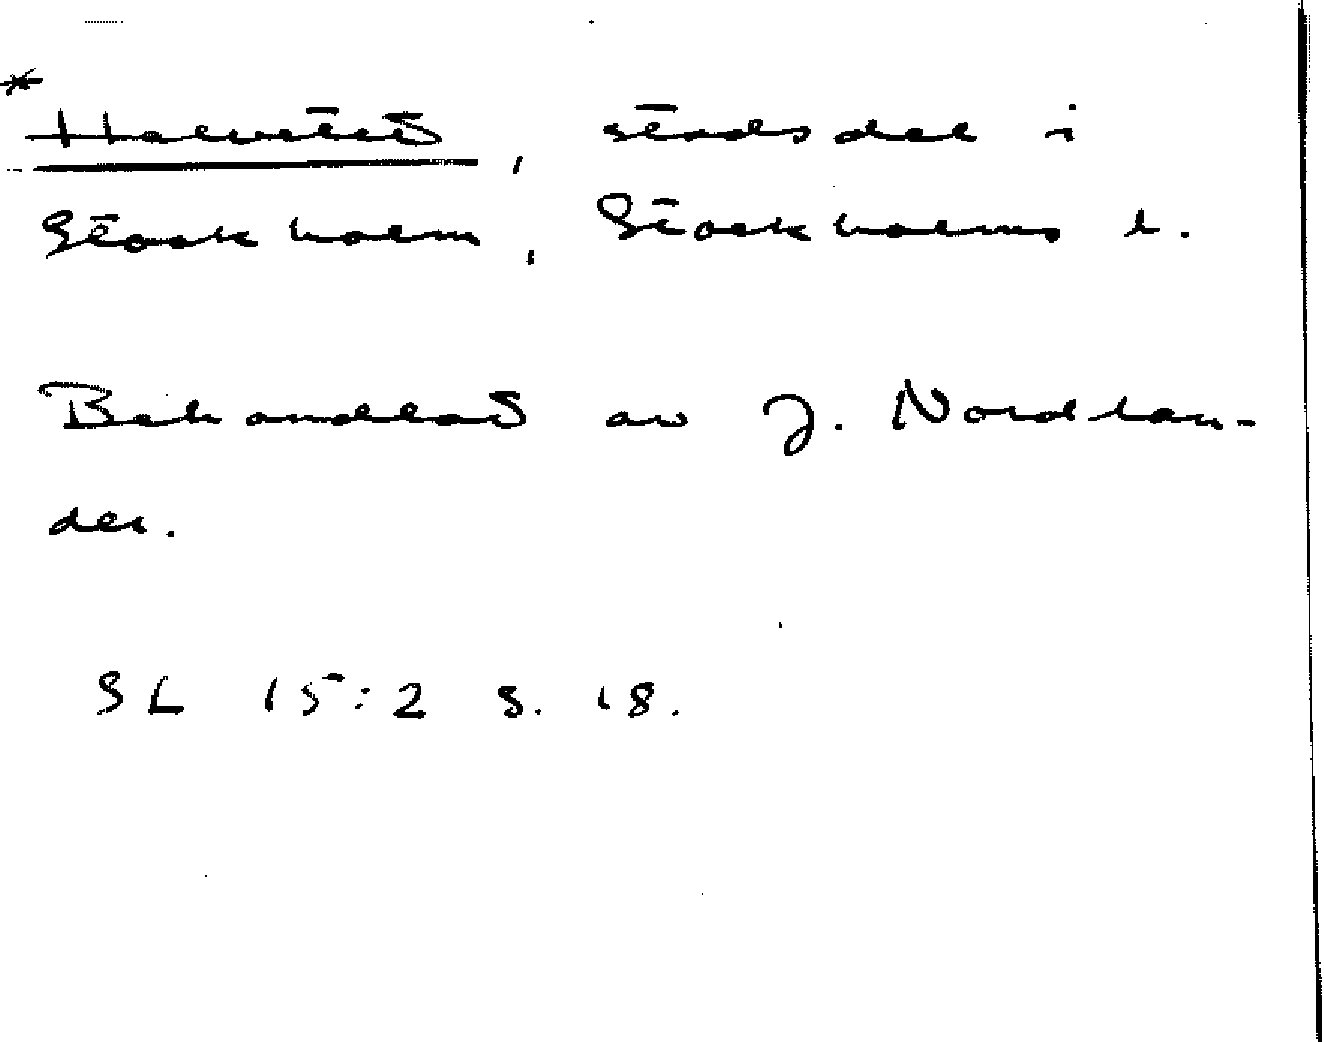 * Helvetet, stadsdel i
Stockholm, Stockholms l.
Behandlat av J. Nordlan-
der.
SL 15:2 s. 18.